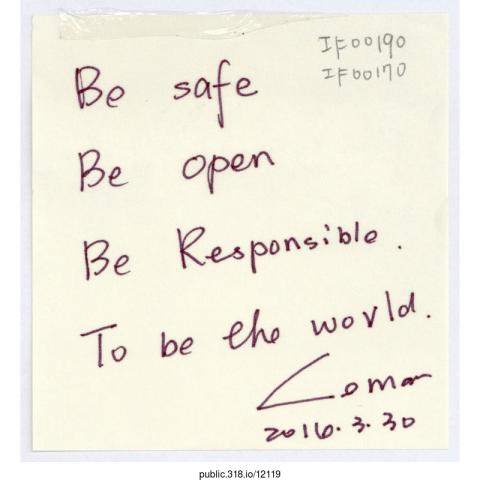 프00190
프00170
Be safe
Be open
Be Responsible.
To be the world.
2016.3.30
public.318.io/12119